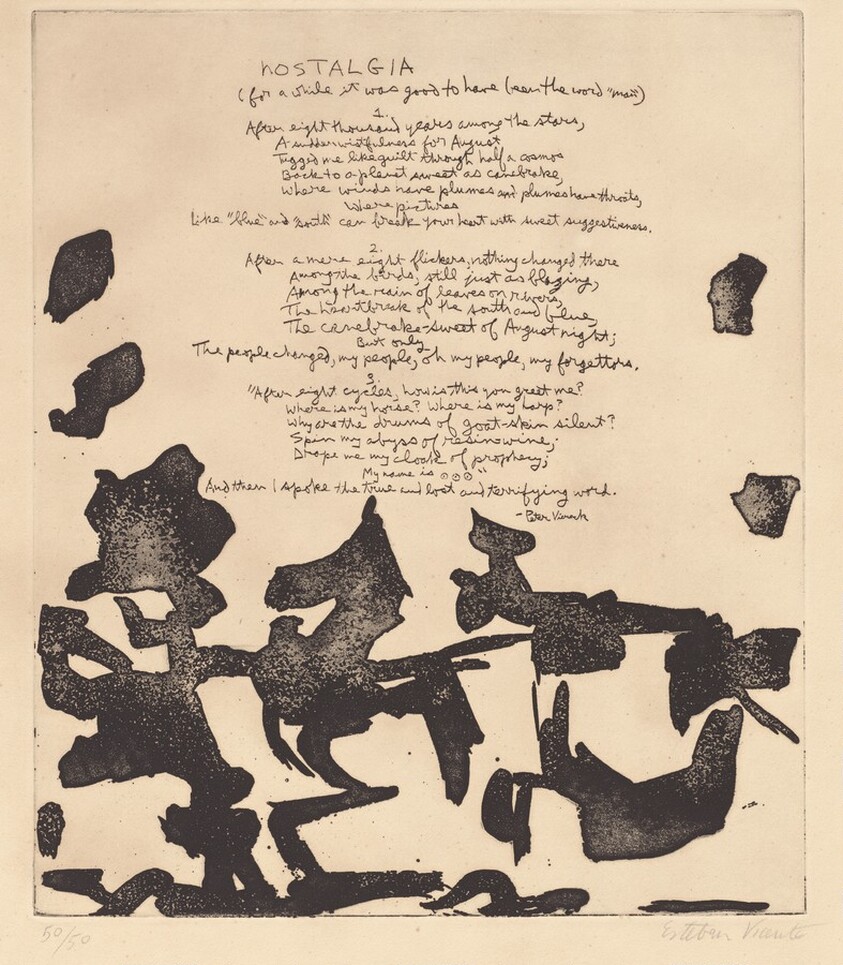 NOSTALGIA
(for a while it was good to have been the word "man")
1.
After eight thousand years among the stars,
A sudden wistfulness for August
Tugged me like guilt through half a cosmos
Back to a planet sweet as canebrake,
Where winds have plumes and plumes have throats,
Where pictures
Like "blue" and "south" can break your heart with sweet suggestiveness.
2.
After a mere eight flickers, nothing changed there
Among the birds, still just as blazing,
Among the rain of leaves on rivers,
The heartbreak of the south and blue,
The canebrake-sweet of August night;
But only
The people changed, my people, oh my people, my forgettors.
3.
"After eight cycles, how is this you greet me?
Where is my horse? Where is my harp?
Why are the drums of goat-skin silent?
Spin my abyss of resin-wine;
Drape me my cloak of prophecy;
My name is
And then I spoke the true and lost and terrifying word.
- Peter Viereck
50/50
Esteban Vicente